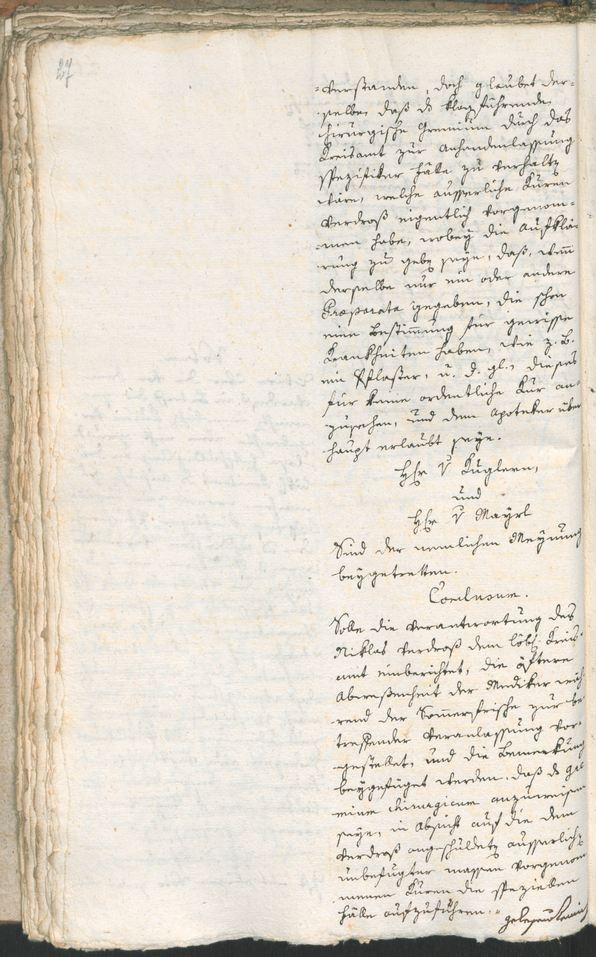 27
=verstanden, doch glaubet der=
=selbe, daß da klagführende
chirurgische Gremium durch das
Kreisamt zur anhandenlassung
spezifiker fälle zu verhalten
wäre, welche ausserliche Kuren
Verdroß eigentlich vorgenom=
=men habe, wobey die Aufklä=
rung zu geben seye, daß, wenn
derselbe nur ein oder andere
Præparata gegeben, die schon
eine Bestimmung für gewisse
Krankheiten haben, wie z. B.
ein Pflaster, u. d. gl., dieses
für keine ordentliche Kur an=
zusehen, und dem Apoteker über
haupt erlaubt seye.
Hr v Kuglern,
und
Hr v Mayrl
Sind der nemlichen Meynung
beygetretten.
Conclusum.
Solle die Verantwortung des
Niklas Verdroß dem löbl. Kreis=
amt einberichtet, die öftere
Abwesenheit der Mediker wäh=
rend der Sommerfrische zur be=
treffender Veranlassung vor=
gestellet, und die Bemerkung
beygefüget werden, daß da Gre=
mium chirurgicum anzuweisen
seye, in Absicht auf die dem
Verdroß angeschuldete ausserliche
unbefugter massen vorgenom=
menen Kuren die speziellen
fälle aufzuführen.=